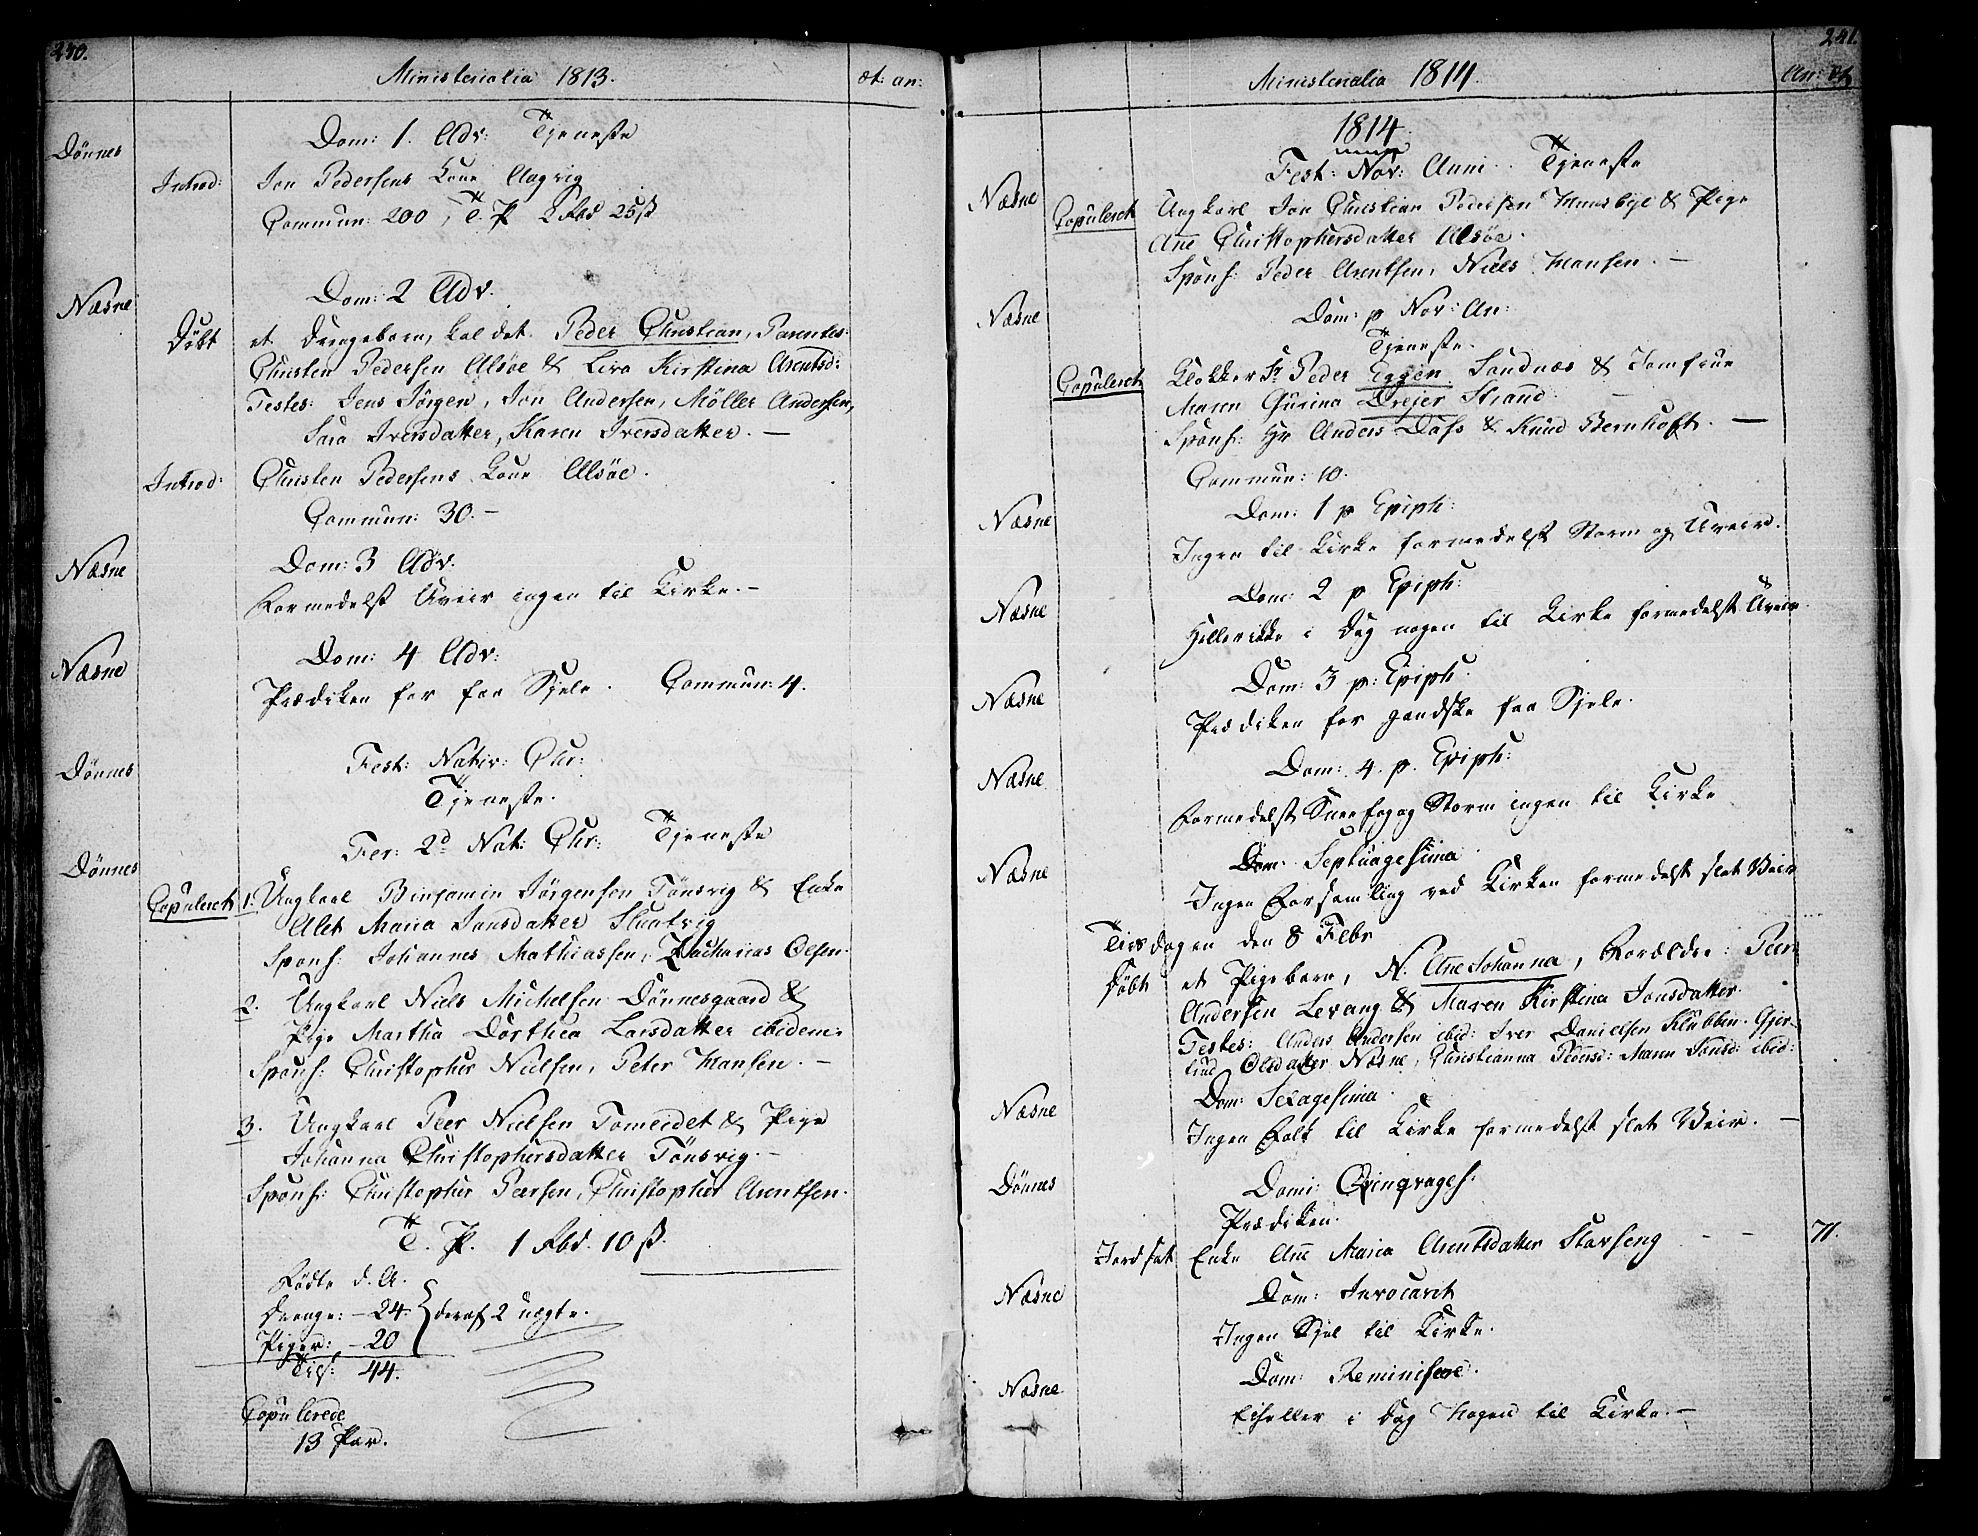 240.
Ministerialia 1813.
æt: an:
Dönnes
Dom: 1. Adv: Tjeneste
Introd: Jon Pedersens Kone Aagvig
Commun: 200, T. P. 2 Rbd 25 ß
Næsne
Dom: 2 Adv.
Döbt et Drengebarn, kaldet Peder Christian, Parentes:
Christen Pedersen Alsöe & Liva Kirstina Arentsd:
Testes: Jens Jörgen, Jon Andersen, Möller Andersen,
Sara Iversdatter, Karen Iversdatter. —
Introd: Christen Pedersens Kone Alsöe.
Commun: 30. —
Næsne
Dom: 3 Adv.
Formedelst Uveir ingen til Kirke. —
Næsne
Dom: 4 Adv:
Prædiken for faa Sjele. Commun: 4.
Dönnes
Fest: Nativ: Chr:
Tjeneste.
Dönnes
Fer: 2d Nat: Chr: Tjeneste
Copuleret 1. Ungkarl Binjamin Jörgensen Tönsvig & Enke
Alet Maria Jansdatter Sluatvig
Spons: Johannes Mathiassen, Zacharias Olsen.
2. Ungkarl Niels Michelsen Dönnesgaard &
Pige Martha Dorthea Larsdatter ibidem.
Spons: Christopher Nielsen, Peter Hansen. —
3. Ungkarl Peer Nielsen Tomeidet & Pige
Johanna Christophersdatter Tönsvig. —
Spons: Christopher Peersen, Christopher Arentsen.
T. P. 1 Rbd. 10 ß.
Födte d. A.
Drenge: — 24. } deraf 2 uægte.
Piger: — 20
Tils: 44.
Copulerede
13 Par.
241.
Ministerialia 1814.
An: æt
1814.
Næsne
Fest: Nov: Anni Tjeneste
Copuleret Ungkarl Jon Christian Pedersen Huusbye & Pige
Ane Christophersdatter Alsöe.
Spons: Peder Arentsen, Niels Hansen. —
Næsne
Dom: p Nov: An:
Tjeneste.
Copuleret Klokker Sr Peder Eggen Sandnæs & Jomfrue
Maren Gurina Drejer Strand.
Spons: Hr Anders Dass & Knud Bernhoft. —
Commun: 10.
Næsne
Dom: 1 p Epiph:
Ingen til Kirke formedelst Storm og Uveir.
Næsne
Dom: 2 p Epiph:
Heller ikke i Dag nogen til Kirke formedelst Uveir.
Næsne
Dom: 3 p: Epiph.
Prædiken for gandske faa Sjele.
Næsne
Dom: 4. p. Epiph:
Formedelst Sneefog og Storm ingen til Kirke
Næsne
Dom: Septuagesima
Ingen Forsamling ved Kirken formedelst slet Veir
Tirsdagen den 8 Febr
Döbt et Pigebarn, N. Ane Johanna, Forældre: Peer
Andersen Levang & Maren Kirstina Jonsdatter.
Testes: Anders Andersen ibid: Iver Danielsen Klubben. Gjer-
trud Olsdatter Næsne, Christianna Pedersd: Maren Jonsd: ibid:
Næsne
Dom: Sexagesima.
Ingen Folk til Kirke formedelst slet Veir. —
Dönnes
Domi: Qvinqvages.
Prædiken.
Jordfæst Enke Ane Maria Arentsdatter Starseng — — 71.
Næsne
Dom: Invocavit
Ingen Sjel til Kirke.
Næsne
Dom: Reminisere.
Eiheller i Dag nogen til Kirke. —